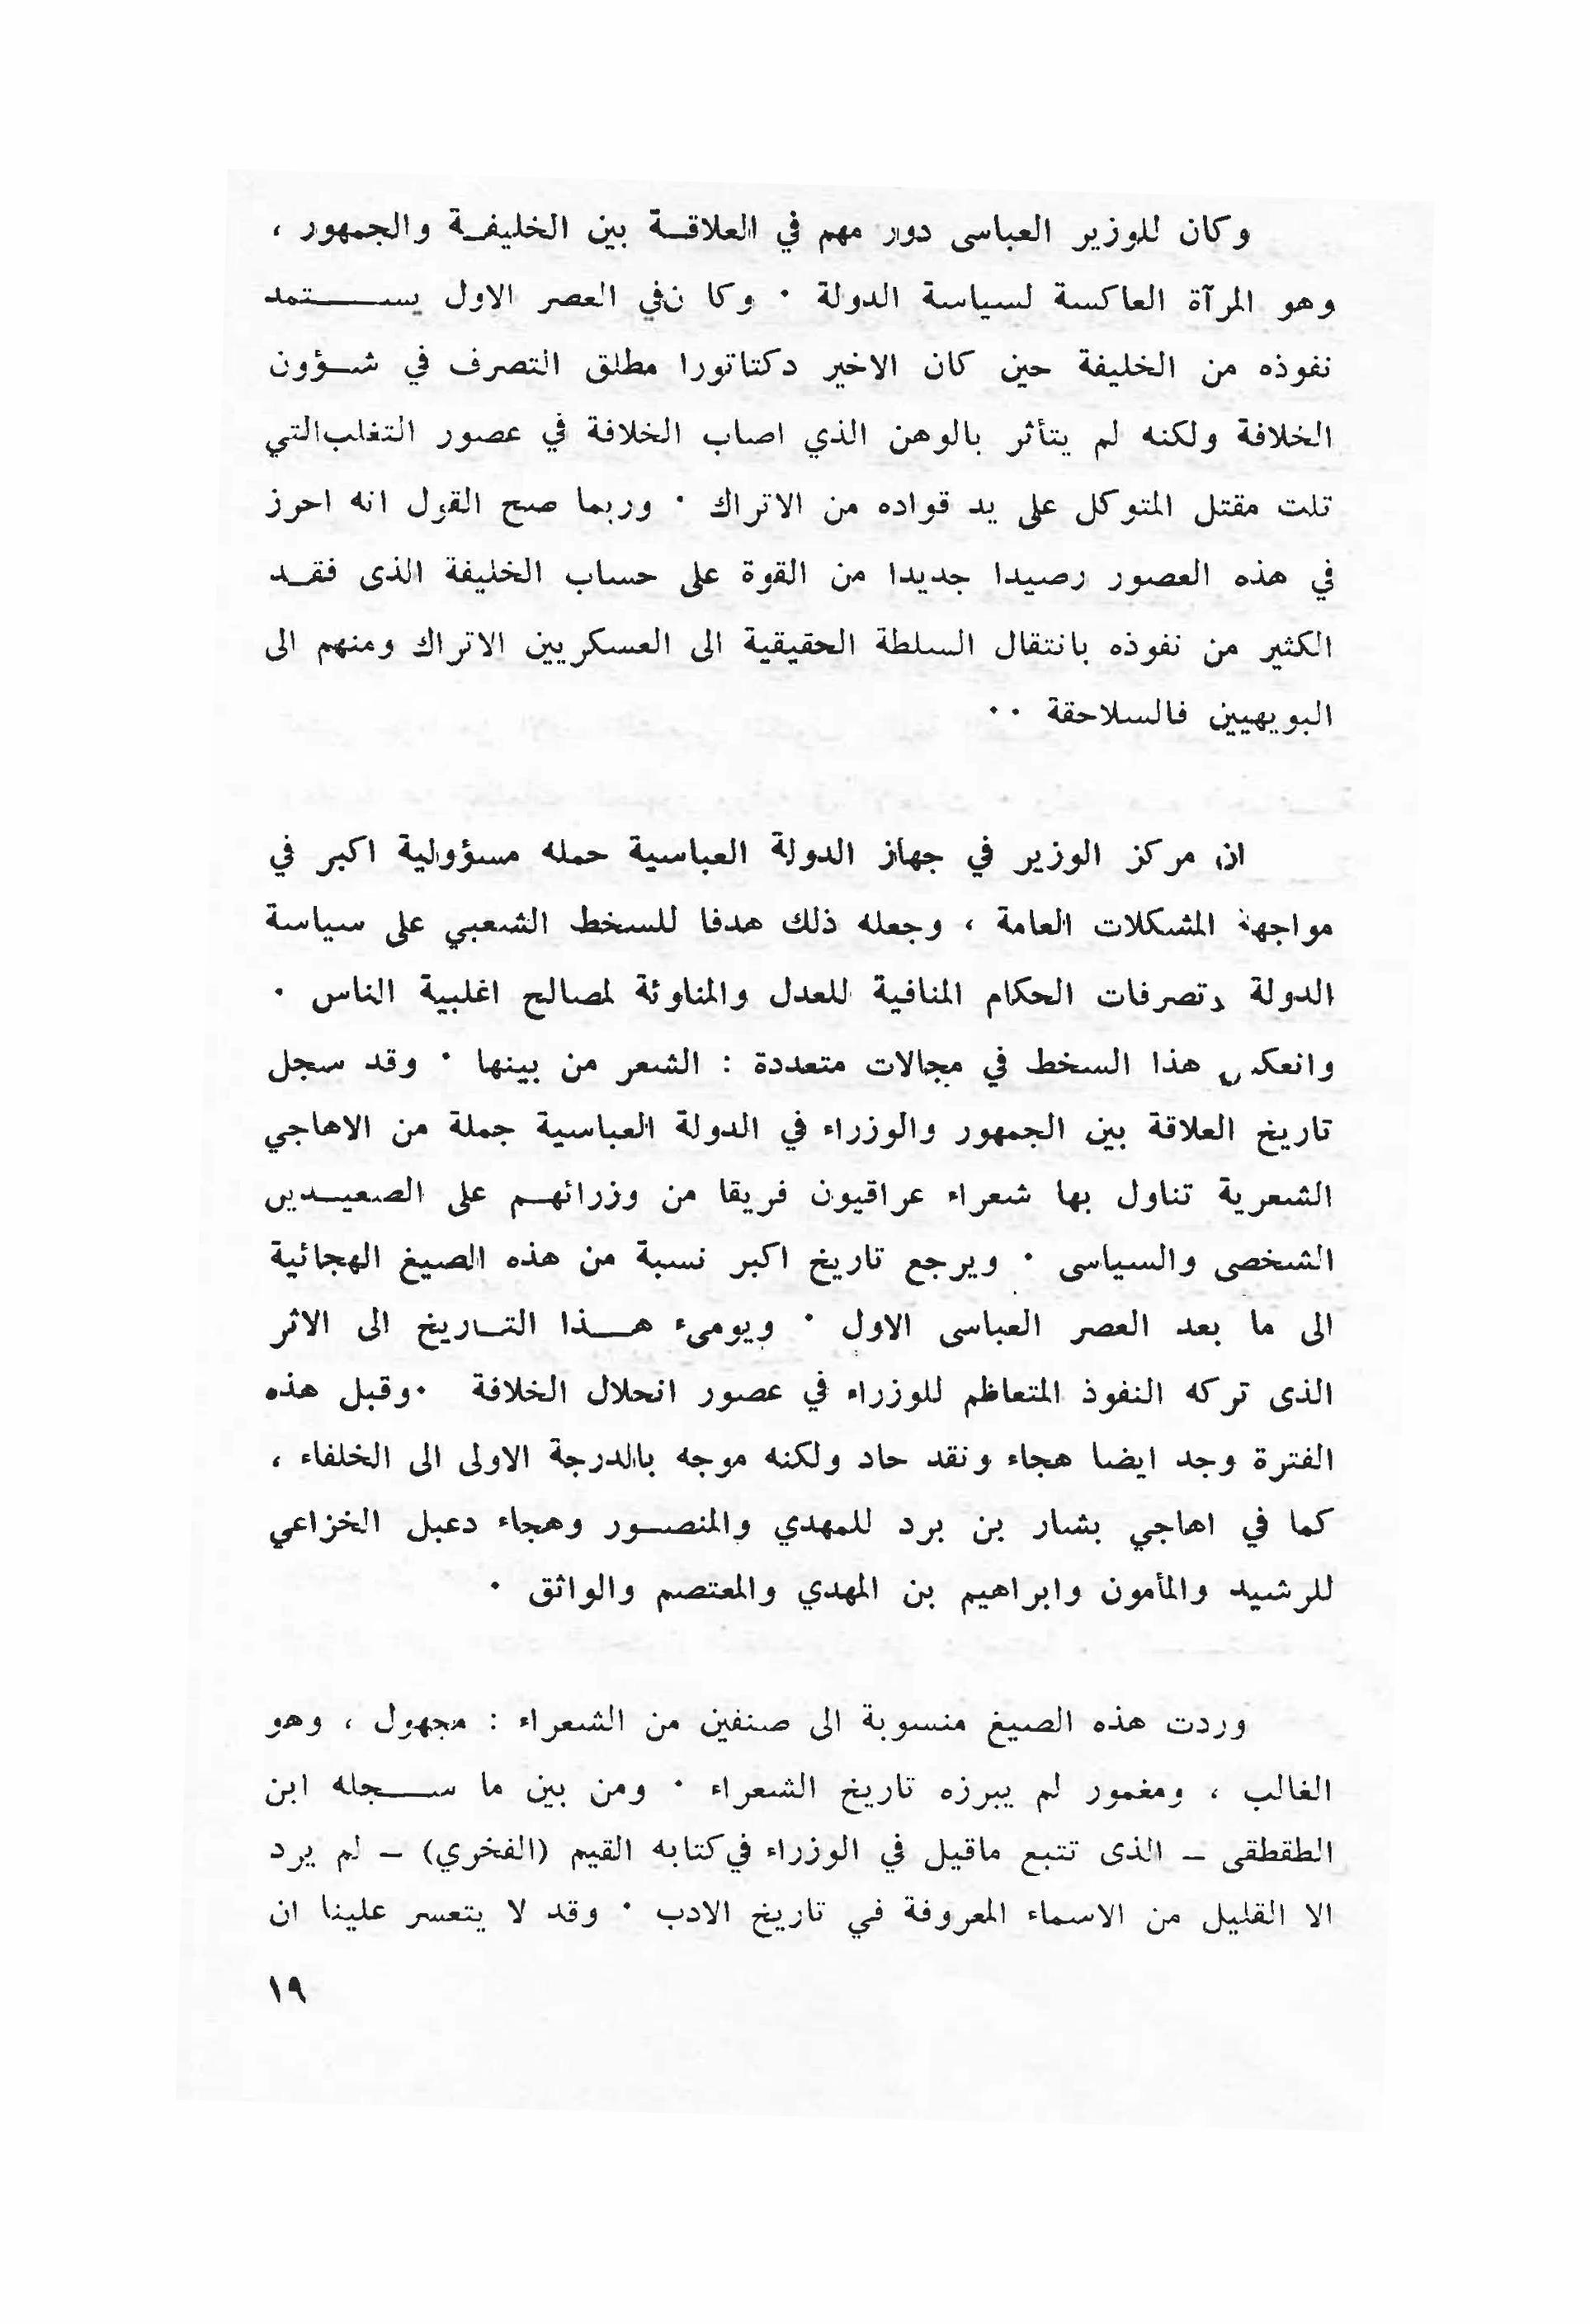 وكان للوزير العباسى دور مهم في العلاقة بين الخليفة والجمهور ،
وهو المرآة العاكسة لسياسة الدولة ٠ وكا نفي العصر الاول يستمد
نفوذه من الخليفة حين كان الاخير دكتاتورا مطلق التصرف في شؤون
الخلافة ولكنه لم يتأثر بالوهن الذي اصاب الخلافة في عصور التغلب التي
تلت مقتل المتوكل على يد قواده من الاتراك ٠ وربما صح القول انه احرز
في هذه العصور رصيدا جديدا من القوة على حساب الخليفة الذى فقد
الكثير من نفوذه بانتقال السلطة الحقيقية الى العسكريين الاتراك ومنهم الى
البويهيين فالسلاحقة ٠٠
ان مركز الوزير في جهاز الدولة العباسية حمله مسؤولية اكبر في
مواجهة المشكلات العامة ، وجعله ذلك هدفا للسخط الشعبي على سياسة
الدولة وتصرفات الحكام المنافية للعدل والمناوئة لمصالح اغلبية الناس ٠
وانعكس هذا السخط في مجالات متعددة : الشعر من بينها ٠ وقد سجل
تاريخ العلاقة بين الجمهور والوزراء في الدولة العباسية جملة من الاهاجي
الشعرية تناول بها شعراء عراقيون فريقا من وزرائهم على الصعيدين
الشخصى والسياسى ٠ ويرجع تاريخ اكبر نسبة من هذه الصيغ الهجائية
الى ما بعد العصر العباسى الاول ٠ ويومىء هذا التاريخ الى الاثر
الذى تركه النفوذ المتعاظم للوزراء في عصور انحلال الخلافة ٠وقبل هذه
الفترة وجد ايضا هجاء ونقد حاد ولكنه موجه بالدرجة الاولى الى الخلفاء ،
كما في اهاجي بشار بن برد للمهدي والمنصور وهجاء دعبل الخزاعي
للرشيد والمأمون وابراهيم بن المهدي والمعتصم والواثق ٠
وردت هذه الصيغ منسوبة الى صنفين من الشعراء : مجهول ، وهو
الغالب ، ومغمور لم يبرزه تاريخ الشعراء ٠ ومن بين ما سجله ابن
الطقطقى – الذى تتبع ماقيل في الوزراء في كتابه القيم (الفخري) – لم يرد
الا القليل من الاسماء المعروفة في تاريخ الادب ٠ وقد لا يتعسر علينا ان
١٩